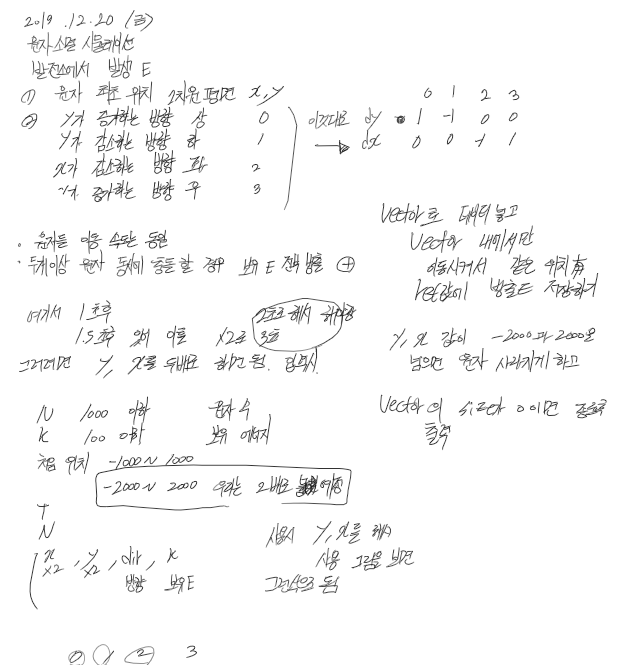 2019.12.20 (금)
원자 소멸 시뮬레이션
발전소에서 발생 E
① 원자 최초 위치 2차원 평면 x, y
② y가 증가하는 방향 상 0
y가 감소하는 방향 하 1
x가 감소하는 방향 좌 2
x가 증가하는 방향 우 3
이것대로 → 0 1 2 3
dy 1 -1 0 0
dx 0 0 -1 1
· 원자들 이동 속도는 동일
· 두개이상 원자 동시에 충돌 할 경우 보유 E 전부 방출
여기서 1초후
1.5초후 있어 이를 x2로 3초
2초로 해서
그러려면 y, x를 두배로 하면 됨.
N 1000 이하 원자 수
K 100 이하 보유 에너지
처음 위치 -1000 ~ 1000
-2000 ~ 2000 우리는 2배로 예정
T
N
x, y, dir, k
x2 x2 방향 보유 E
Vector로 데이터 넣고
Vector 내에서만
이동시켜서 같은 위치
ret값에 방출E 저장하기
y, x 값이 -2000과 2000을
넘으면 원자 사라지게 하고
Vector의 size가 0이면 종료
출력
사용시 y, x를 해서
사용 그림을 보면
그런식으로 됨
0 1 2 3